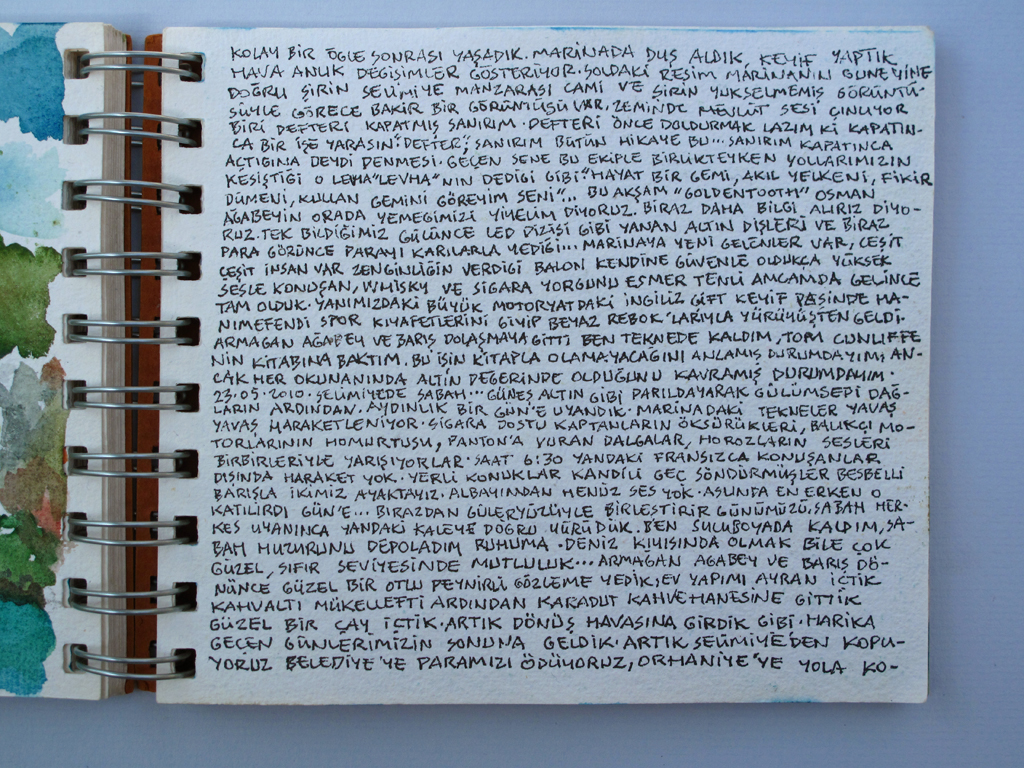 KOLAY BİR ÖĞLE SONRASI YAŞADIK. MARİNADA DUŞ ALDIK, KEYİF YAPTIK
HAVA ANLIK DEĞİŞİMLER GÖSTERİYOR. SOLDAKİ RESİM MARİNANIN GÜNEYİNE
DOĞRU ŞİRİN SELİMİYE MANZARASI CAMİ VE ŞİRİN YÜKSELMEMİŞ GÖRÜNTÜ-
SÜYLE GÖRECE BAKİR BİR GÖRÜNTÜSÜ VAR. ZEMİNDE MEVLÜT SESİ ÇINLIYOR
BİRİ DEFTERİ KAPATMIŞ SANIRIM. DEFTERİ ÖNCE DOLDURMAK LAZIM Kİ KAPATIN-
CA BİR İŞE YARASIN "DEFTER", SANIRIM BÜTÜN HİKAYE BU... SANIRIM KAPATINCA
AÇTIĞINA DEYDİ DENMESİ. GEÇEN SENE BU EKİPLE BİRLİKTEYKEN YOLLARIMIZIN
KESİŞTİĞİ O LEVHA "LEVHA"NIN DEDİĞİ GİBİ "HAYAT BİR GEMİ, AKIL YELKENİ, FİKİR
DÜMENİ, KULLAN GEMİNİ GÖREYİM SENİ"... BU AKŞAM "GOLDENTOOTH" OSMAN
AĞABEYİN ORADA YEMEĞİMİZİ YİYELİM DİYORUZ. BİRAZ DAHA BİLGİ ALIRIZ DİYO-
RUZ. TEK BİLDİĞİMİZ GÜLÜNCE LED DİZİSİ GİBİ YANAN ALTIN DİŞLERİ VE BİRAZ
PARA GÖRÜNCE PARAYI KARILARLA YEDİĞİ... MARİNAYA YENİ GELENLER VAR, ÇEŞİT
ÇEŞİT İNSAN VAR ZENGİNLİĞİN VERDİĞİ BALON KENDİNE GÜVENLE OLDUKÇA YÜKSEK
SESLE KONUŞAN, WHISKY VE SİGARA YORGUNU ESMER TENLİ AMCAMDA GELİNCE
TAM OLDUK. YANIMIZDAKİ BÜYÜK MOTORYATDAKİ İNGİLİZ ÇİFT KEYİF PEŞİNDE HA-
NIMEFENDİ SPOR KIYAFETLERİNİ GİYİP BEYAZ REBOK'LARIYLA YÜRÜYÜŞTEN GELDİ.
ARMAĞAN AĞABEY VE BARIŞ DOLAŞMAYA GİTTİ BEN TEKNEDE KALDIM, TOM CUNLIFFE
NİN KİTABINA BAKTIM. BU İŞİN KİTAPLA OLAMAYACAĞINI ANLAMIŞ DURUMDAYIM; AN-
CAK HER OKUNANINDA ALTIN DEĞERİNDE OLDUĞUNU KAVRAMIŞ DURUMDAYIM.
23.05.2010. SELİMİYEDE SABAH... GÜNEŞ ALTIN GİBİ PARILDAYARAK GÜLÜMSEDİ DAĞ-
LARIN ARDINDAN. AYDINLIK BİR GÜN'E UYANDIK. MARİNADAKİ TEKNELER YAVAŞ
YAVAŞ HARAKETLENİYOR. SİGARA DOSTU KAPTANLARIN ÖKSÜRÜKLERİ, BALIKÇI MO-
TORLARININ HOMURTUSU, PANTON'A VURAN DALGALAR, HOROZLARIN SESLERİ
BİRBİRLERİYLE YARIŞIYORLAR. SAAT 6:30 YANDAKİ FRANSIZCA KONUŞANLAR
DIŞINDA HARAKET YOK. YERLİ KONUKLAR KANDİLİ GEÇ SÖNDÜRMÜŞLER BESBELLİ
BARIŞLA İKİMİZ AYAKTAYIZ. ALBAYIMDAN HENÜZ SES YOK. ASLINDA EN ERKEN O
KATILIRDI GÜN'E... BİRAZDAN GÜLERYÜZÜYLE BİRLEŞTİRİR GÜNÜMÜZÜ, SABAH HER-
KES UYANINCA YANDAKİ KALEYE DOĞRU YÜRÜDÜK. BEN SULUBOYADA KALDIM, SA-
BAH HUZURUNU DEPOLADIM RUHUMA. DENİZ KIYISINDA OLMAK BİLE ÇOK
GÜZEL, SIFIR SEVİYESİNDE MUTLULUK... ARMAĞAN AĞABEY VE BARIŞ DÖ-
NÜNCE GÜZEL BİR OTLU PEYNİRLİ GÖZLEME YEDİK, EV YAPIMI AYRAN İÇTİK
KAHVALTI MÜKELLEFTİ ARDINDAN KARADUT KAHVEHANESİNE GİTTİK
GÜZEL BİR ÇAY İÇTİK. ARTIK DÖNÜŞ HAVASINA GİRDİK GİBİ. HARİKA
GEÇEN GÜNLERİMİZİN SONUNA GELDİK. ARTIK SELİMİYE'DEN KOPU-
YORUZ BELEDİYE'YE PARAMIZI ÖDÜYORUZ, ORHANİYE'YE YOLA KO-